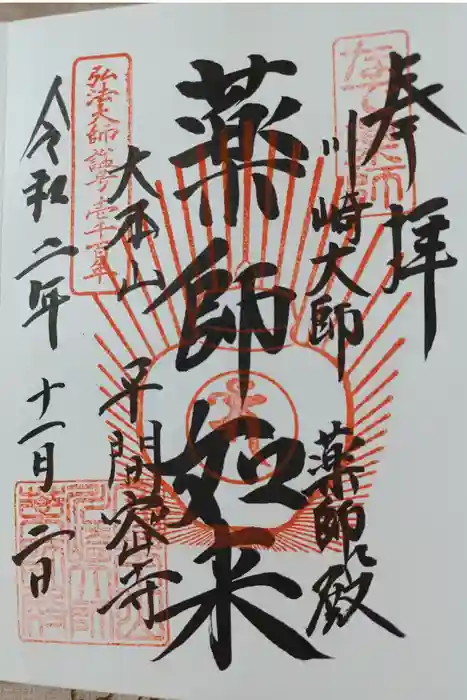 奉拝
川崎大師
薬師殿
薬師如来
大本山
平間密寺
弘法大師諡号壱千百年
令和二年
十一月
二日